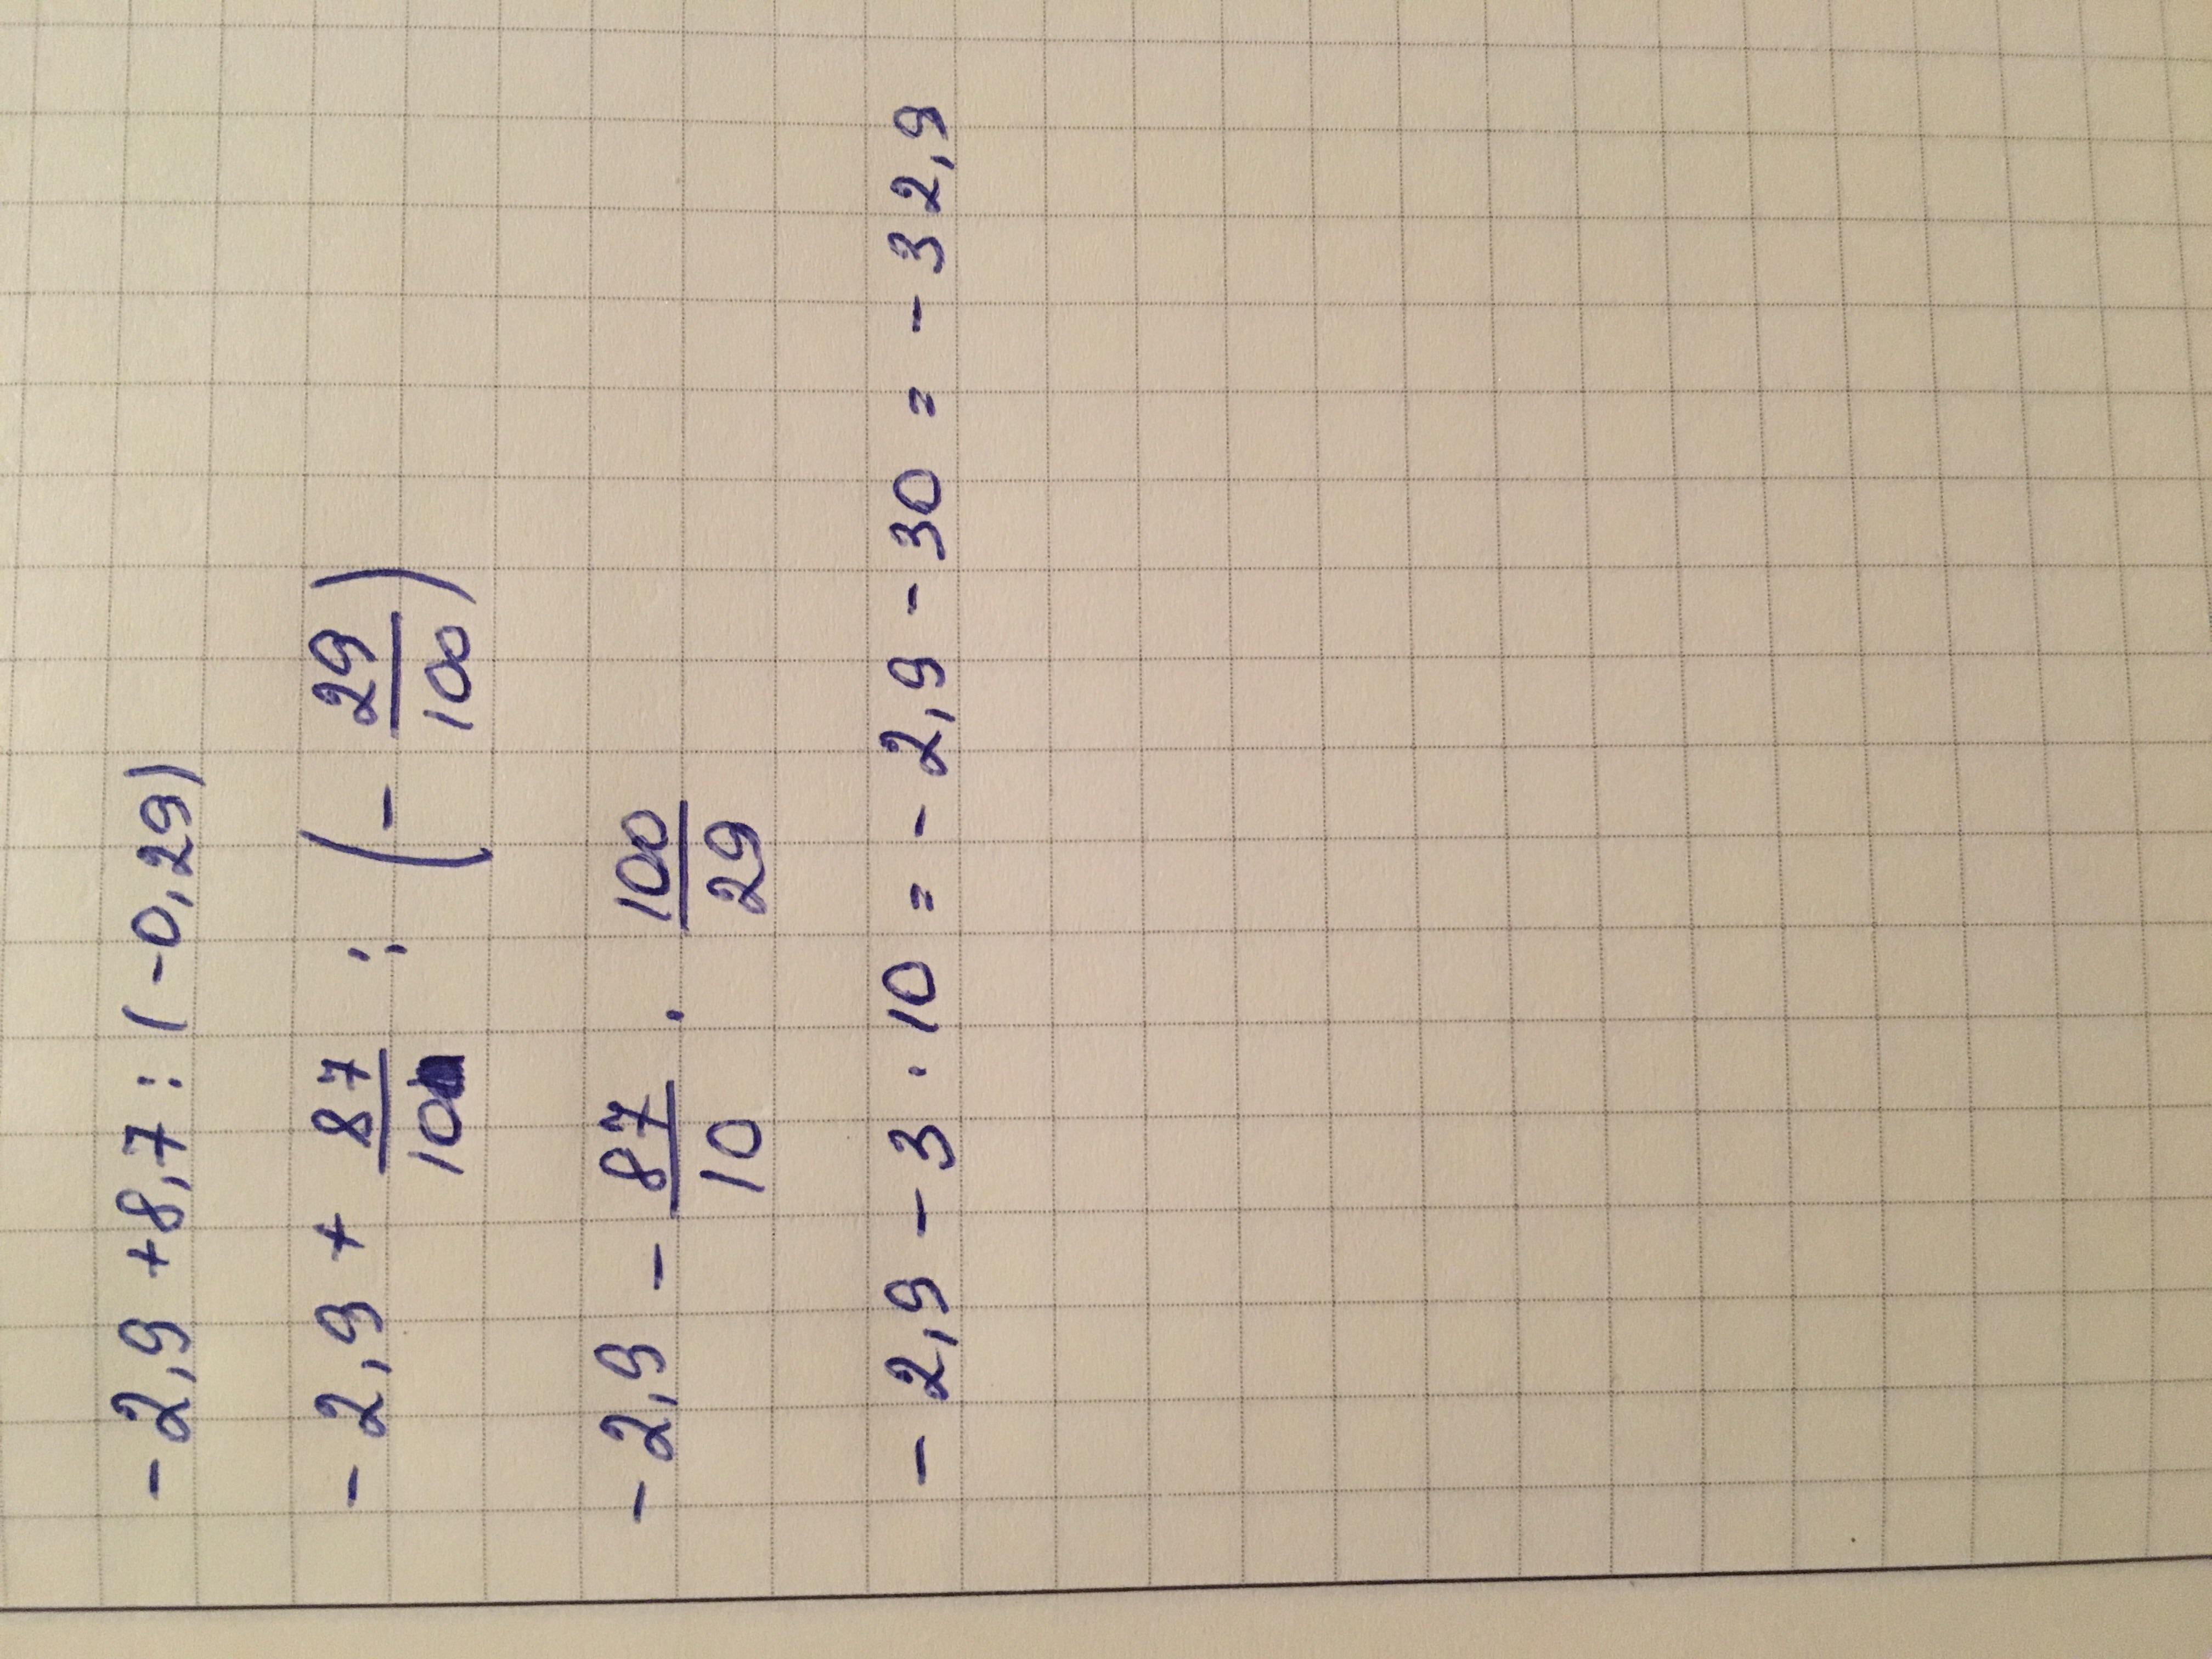 -2,9 +8,7 : (-0,29)
-2,9 + 87/10 : (- 29/100)
-2,9 - 87/10 · 100/29
-2,9 - 3 · 10 = -2,9 - 30 = -32,9